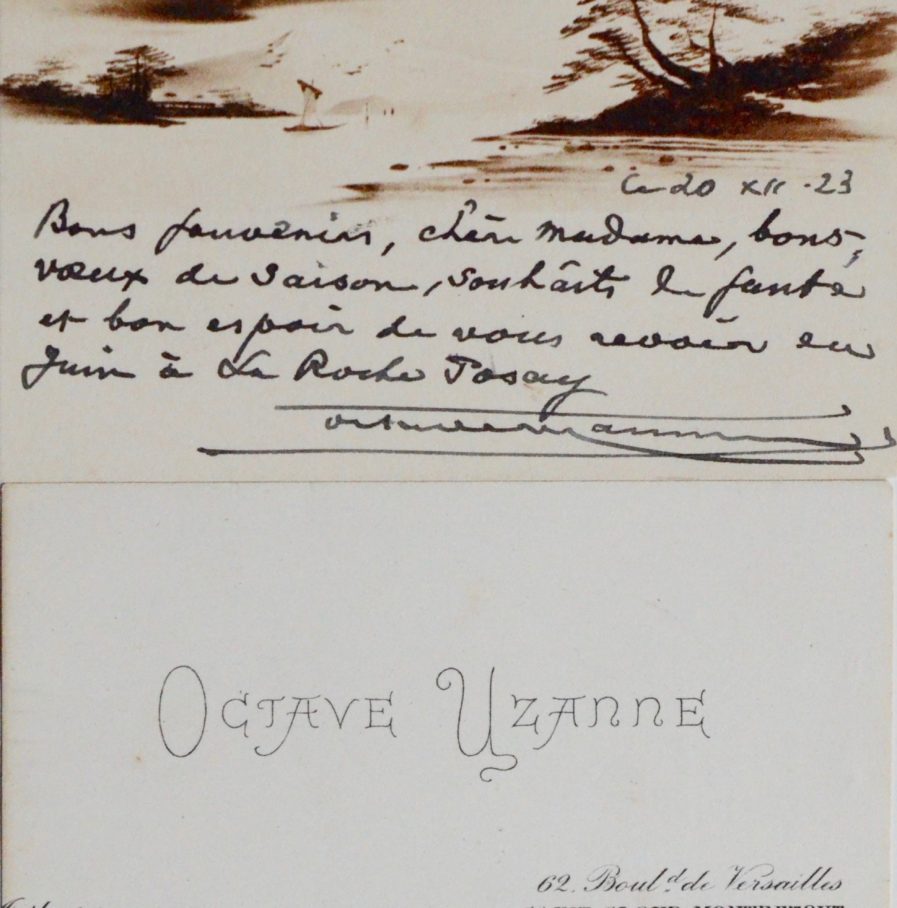 Ce 20 XII - 23
Bons souvenirs, chère Madame, bons
vœux de saison, souhaits de santé
et bon espoir de vous revoir en
Juin à La Roche Posay
Octave Uzanne
OCTAVE UZANNE
62. Boul.d de Versailles